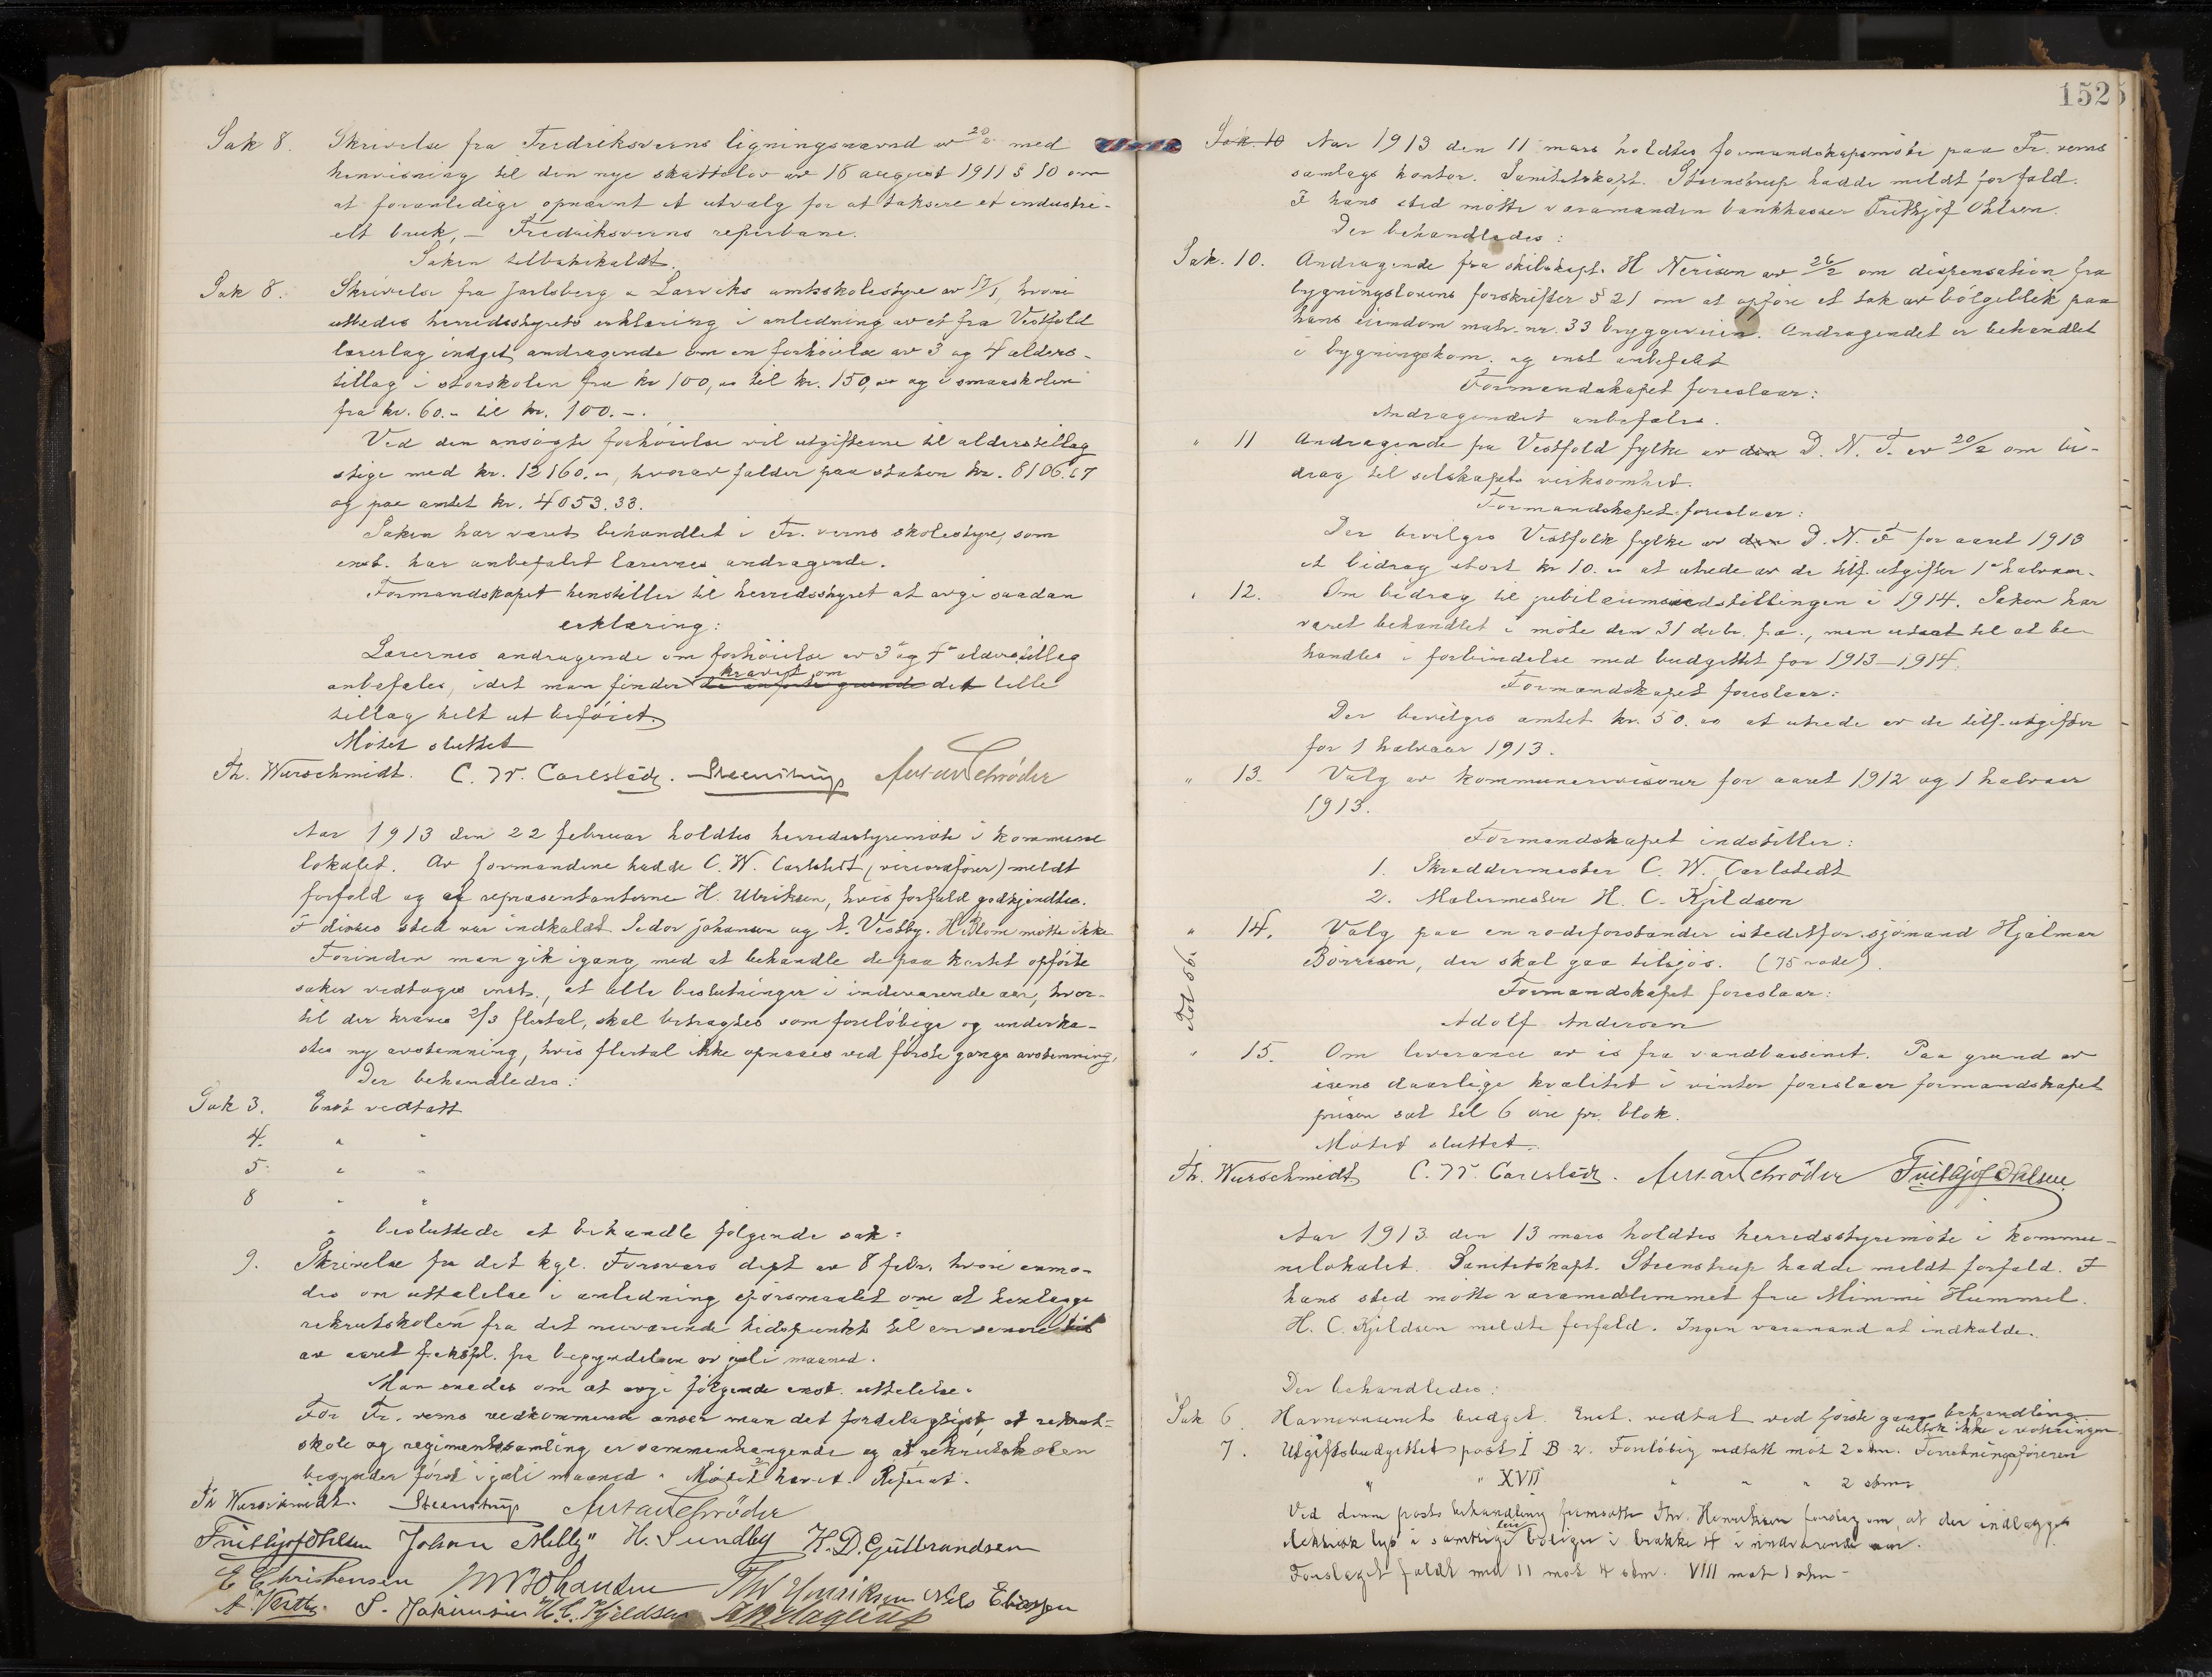 Sak 8. Skrivelse fra Fredriksverns ligningsnævnd av 20/2 med
henvisning til den nye skattelov av 18 august 1911 § 10 om
at foranledige opnævnt et utvalg for at taksere et industri-
elt bruk, – Fredriksverns reperbane.
Saken tilbakekaldt.
Sak 8. Skrivelse fra Jarlsberg & Larviks amtsskolestyre av 17/1, hvori
utbedes herredsstyrets erklæring i anledning av et fra Vestfold
lærerlag indget andragende om en forhöielse av 3 og 4 alders-
tillag i storskolen fra kr 100,00 til kr. 150,00 og i smaaskolen
fra kr. 60.– til kr. 100.–.
Ved den ansögte forhöielse vil utgifterne til alderstillag
stige med kr. 12160.00, hvorav falder paa staten kr. 8106.67
og paa amtet kr. 4053.33.
Saken har været behandlet i Fr. verns skolestyre, som
enst. har anbefalet lærernes andragende.
Formandskapet henstiller til herredsstyret at avgi saadan
erklæring:
Lærernes andragende om forhöielse av 3' og 4' alderstillag
kravet om
anbefales, idet man finder de anförte grunde det lille
tillag helt ut beföiet.
Mötet sluttet
Th. Wurschmidt. C. W. Carlstedt. Steenstrup Anton Schröder
Aar 1913 den 22 februar holdtes herredsstyremöte i kommune
lokalet. Av formændene hadde C. W. Carlstedt (viceordförer) meldt
forfald og af repræsentanterne H. Ulriksen, hvis forfald godkjendtes.
I disses sted var indkaldt Sedor Johansen og A. Vestby. H. Blom mötte ikke
Forinden man gik igang med at behandle de paa kartet opförte
saker vedtoges enst., at alle beslutninger i indeværende aar, hvor-
til der kræves 2/3 flertal, skal betragtes som forelöbige og underka-
stes ny avstemning, hvis flertal ikke opnaaes ved förste gangs avstemning.
Der behandledes:
Sak 3. Enst vedtatt
4. " "
5. " "
8 " "
" besluttede at behandle fölgende sak:
9. Skrivelse fra det kgl. Forsvars dept av 8 febr. hvori anmo-
des om uttalelse i anledning spörsmaalet om at henlægge
rekrutskolen fra det nuværende tidspunkt til en senere tid
av aaret f.ekspl. fra begyndelsen av juli maaned.
Man enedes om at avgi fölgende enst. uttalelse:
For Fr. verns vedkommende anser man det fordelagtigst, at rekrut-
skole og regimentssamling er sammenhængende og at rekrutskolen
begynder först i juli maaned. Mötet hævet. Referat.
Th Wurschmidt. Steenstrup Anton Schröder
Frithjof Ohlsen Johan Melby H. Sundby K. D. Gulbrandsen
E Christensen M Johansen Th Henriksen Nils Eliassen
A. Vestby. S. Johannsen H. C. Kjeldsen
152
Sak 10 Aar 1913 den 11 mars holdtes formandskapsmöte paa Fr. verns
samlags kontor. Sanitetskapt. Steenstrup hadde meldt forfald.
I hans sted mötte varamanden bankkasser Frithjof Ohlsen.
Der behandledes:
Sak. 10. Andragende fra skibskapt. H Nerisen av 26/2 om dispensation fra
bygningslovens forskrifter § 21 om at opföre et tak av bölgeblik paa
hans eiendom matr. nr. 33 bryggeveien. Andragendet er behandlet
i bygningskom. og enst anbefalt
Formandskapet foreslaar:
Andragendet anbefales.
" 11 Andragende fra Vestfold fylke av den D. N. T. av 20/2 om bi-
drag til selskapets virksomhed.
Formandskapet foreslaar:
Der bevilges Vestfold fylke av den D. N. T for aaret 1913
et bidrag stort kr 10.00 at utrede av de tilf. utgifter 1' halvaar.
" 12. Om bidrag til jubilæumsutstillingen i 1914. Saken har
været behandlet i möte den 31 decbr. f.a., men utsat til at be-
handles i forbindelse med budgettet for 1913–1914.
Formandskapet foreslaar:
Der bevilges amtet kr. 50.00 at utrede av de tilf. utgifter
for 1 halvaar 1913.
" 13. Valg av kommunerevisorer for aaret 1912 og 1 halvaar
1913.
Formandskapet indstiller:
1. Skreddermester C. W. Carlstedt
2. Malermester H. C. Kjeldsen
" 14. Valg paa en rodeforstander istedetfor sjömand Hjalmar
Börresen, der skal gaa tilsjös. (75 rode).
Formandskapet foreslaar:
Adolf Andersen
" 15. Om leverance av is fra vandbassinet. Paa grund av
isens daarlige kvalitet i vinter foreslaar formandskapet
prisen sat til 6 öre pr. blok.
Mötet sluttet.
Th. Wurschmidt C. W. Carlstedt. Anton Schröder Frithjof Ohlsen
Aar 1913 den 13 mars holdtes herredsstyremöte i kommu-
nelokalet. Sanitetskapt. Steenstrup hadde meldt forfald. I
hans sted mötte varamedlemmet fru Mimmi Hummel.
H. C. Kjeldsen meldte forfald. Ingen varamand at indkalde.
Der behandledes:
Sak 6 Havnevæsenets budget. Enst. vedtat ved förste gangs behandling
deltok ikke i voteringen
7. Utgiftsbudgettets post I B 2. Forelöbig vedtatt mot 2 stm. Forretningsföreren
" " XVII " " " 2 stmr
Ved denne posts behandling fremsatte Thv. Henriksen forslag om, at der indlægges
elektrisk lys i samtlige leieboliger i brakke 4 i indværende aar.
Forslaget faldt med 11 mot 4 stm. VIII mot 1 stm –